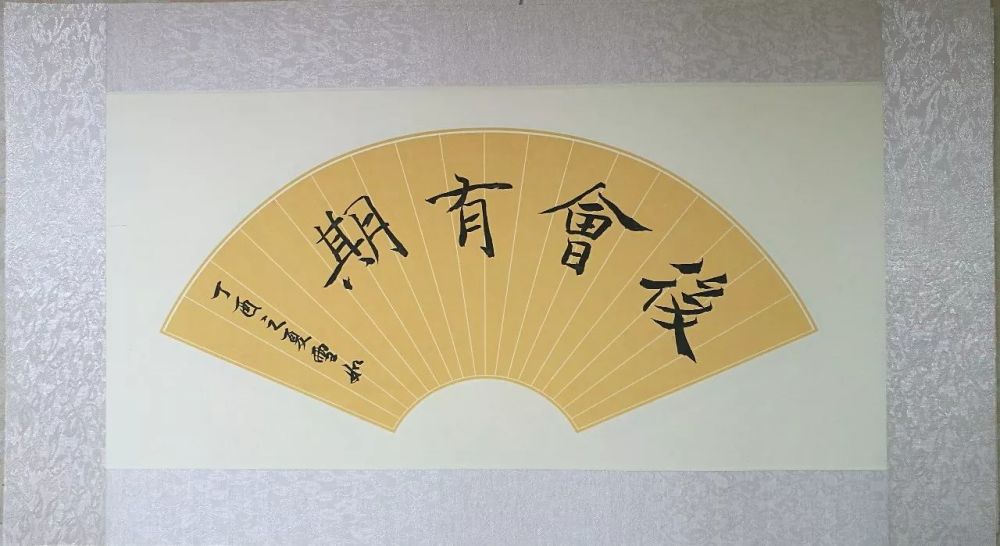 後會有期
丁酉之夏雪如